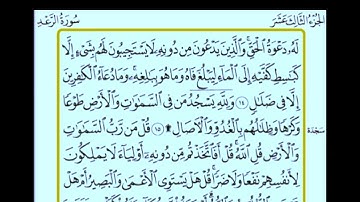 الجُزْءُ الثَّالِثَ عَشَرَ
سُورَةُ الرَّعْدِ
لَهُۥ دَعْوَةُ ٱلْحَقِّ ۖ وَٱلَّذِينَ يَدْعُونَ مِن دُونِهِۦ لَا يَسْتَجِيبُونَ لَهُم بِشَىْءٍ إِلَّا
كَبَٰسِطِ كَفَّيْهِ إِلَى ٱلْمَآءِ لِيَبْلُغَ فَاهُ وَمَا هُوَ بِبَٰلِغِهِۦ ۚ وَمَا دُعَآءُ ٱلْكَٰفِرِينَ
إِلَّا فِى ضَلَٰلٍ ١٤ وَلِلَّهِ يَسْجُدُ مَن فِى ٱلسَّمَٰوَٰتِ وَٱلْأَرْضِ طَوْعًا
وَكَرْهًا وَظِلَٰلُهُم بِٱلْغُدُوِّ وَٱلْءَاصَالِ ۩ ١٥ قُلْ مَن رَّبُّ ٱلسَّمَٰوَٰتِ
سَجْدَة
وَٱلْأَرْضِ قُلِ ٱللَّهُ ۚ قُلْ أَفَٱتَّخَذْتُم مِّن دُونِهِۦٓ أَوْلِيَآءَ لَا يَمْلِكُونَ
لِأَنفُسِهِمْ نَفْعًا وَلَا ضَرًّا ۚ قُلْ هَلْ يَسْتَوِى ٱلْأَعْمَىٰ وَٱلْبَصِيرُ أَمْ هَلْ